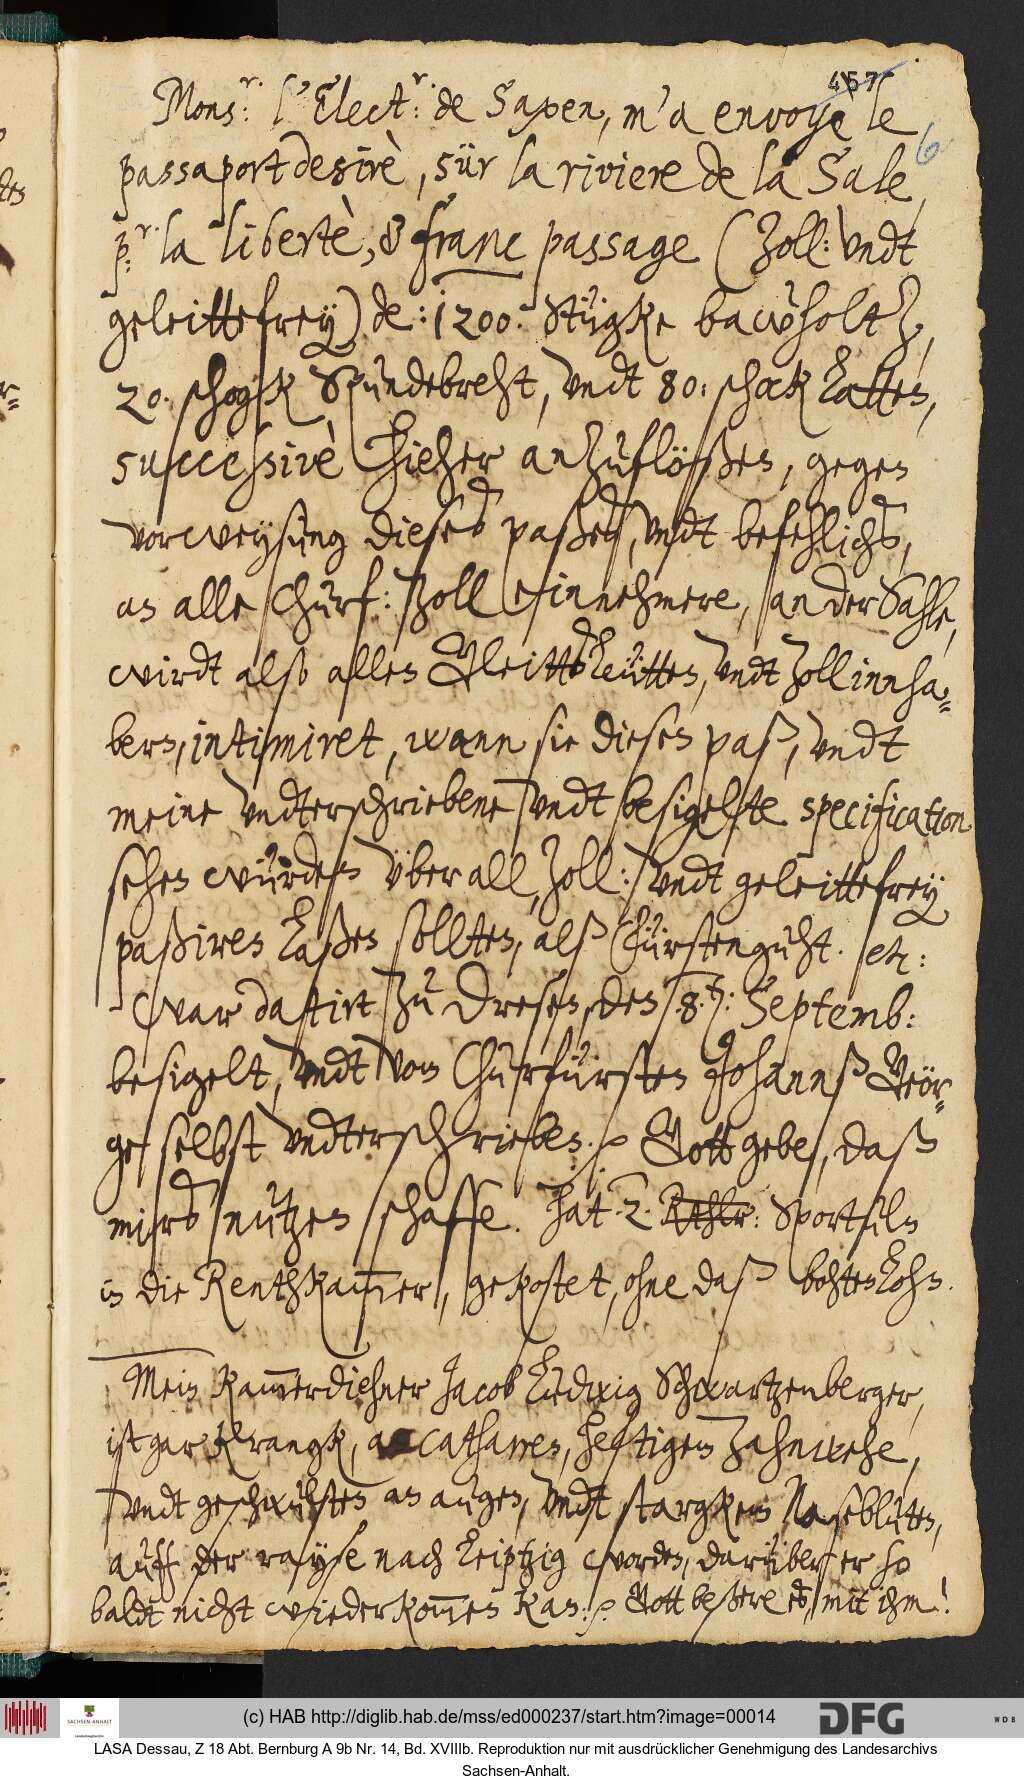 457
6
Mons.r l'Elect.r de Saxen, m'a envoye le
passaport desirè, sür la riviere de la Sale,
p.r la libertè, & franc passage (Zoll: undt
geleittefrey) de: 1200. Stügke bawholtz,
20. schogk Spundebreht, undt 80: schock Latten,
successivè hieher anzuflößen, gegen
vorweysung dieses paßes, undt befehlichs,
an alle Churf: Zoll Einnehmere, an der Sahle,
wirdt also allen Gleittsleütten, undt Zoll innha-
bern, intimiret, wann sie diesen paß, undt
meine undterschriebene undt besigelte specification
sehen würden überall, Zoll: undt geleittefrey
paßiren laßen sollten, alß Fürstenguht. etc:
War datirt zu Dresen, den 8.t: Septemb:
besigelt, undt vom Churfürsten Johannß Geör-
ge selbst undterschrieben. Gott gebe, daß
mirs nutzen schaffe. Hat 2. Rethlr: Sportuln
in die Renthkammer, gekostet, ohne daß bohtenlohn.
Mein Kammerdiehner Jacob Ludwig Schwartzenberger,
ist gar krangk, a catharren, heftigem Zahnwehe,
undt geschwulsten an augen, undt stargkem Nasebluten,
auff der rayse nach Leiptzig worden, darüber er so
baldt nicht wiederkommen kan. Gott beßere es, mit ihm!
(c) HAB http://diglib.hab.de/mss/ed000237/start.htm?image=00014
SACHSEN-ANHALT
DFG
WDB
LASA Dessau, Z 18 Abt. Bernburg A 9b Nr. 14, Bd. XVIIIb. Reproduktion nur mit ausdrücklicher Genehmigung des Landesarchivs
Sachsen-Anhalt.